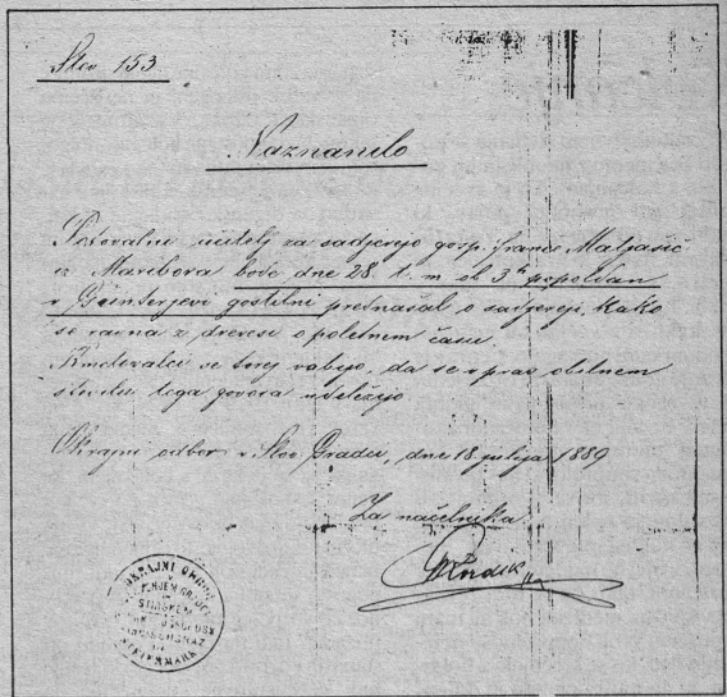 Štev 153
Naznanilo
Potovalni učitelj za sadjerejo gosp. France Matjasič
iz Maribora bode dne 28. t. m ob 3h popoldan
v Günterjevi gostilni prednašal o sadjereji, kako
se ravna z drevesi o poletnem času.
Kmetovalci se torej vabijo, da se v prav obilnem
številu tega govora udeležijo
Okrajni odbor v Slov. Gradcu, dne 18 julija 1889
Za načelnika
OKRAJNI ODBOR
STEIERMARK